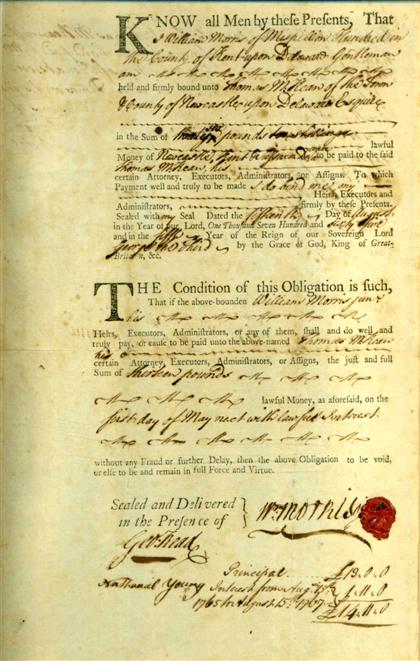 KNOW all Men by these Presents, That
I William Morris of Mespillion Hundred in
the County of Kent upon Delaware Gentleman
am
held and firmly bound unto Thomas McKean of the Town
& County of Newcastle upon Delaware Esquire
in the Sum of pounds
lawful
Money of Newcastle, Kent & to be paid to the said
Thomas McKean, his
certain Attorney, Executors, Administrators, or Assigns. To which
Payment well and truly to be made I do bind me, my
Heirs, Executors and
Administrators, firmly by these Presents.
Sealed with my Seal Dated the fifteenth Day of August
in the Year of our Lord, One Thousand Seven Hundred and Sixty five
and in the fifth Year of the Reign of our Sovereign Lord
George the Third by the Grace of God, King of Great-
Britain, &c.
THE Condition of this Obligation is such,
That if the above-bounden William Morris junr
his
Heirs, Executors, Administrators, or any of them, shall and do well and
truly pay, or cause to be paid unto the above-named Thomas McKean
his
certain Attorney, Executors, Administrators, or Assigns, the just and full
Sum of thirteen pounds
lawful Money, as aforesaid, on the
first day of May next with lawful Interest.
without any Fraud or further Delay, then the above Obligation to be void,
or else to be and remain in full Force and Virtue.
Sealed and Delivered
in the Presence of
Wm Morris Jr
Geo: Read
Nathanael Young
Principal £13.0.0
Interest from Aug. 15th
1765 to August 15th 1767 1.11.0
£14.11.0